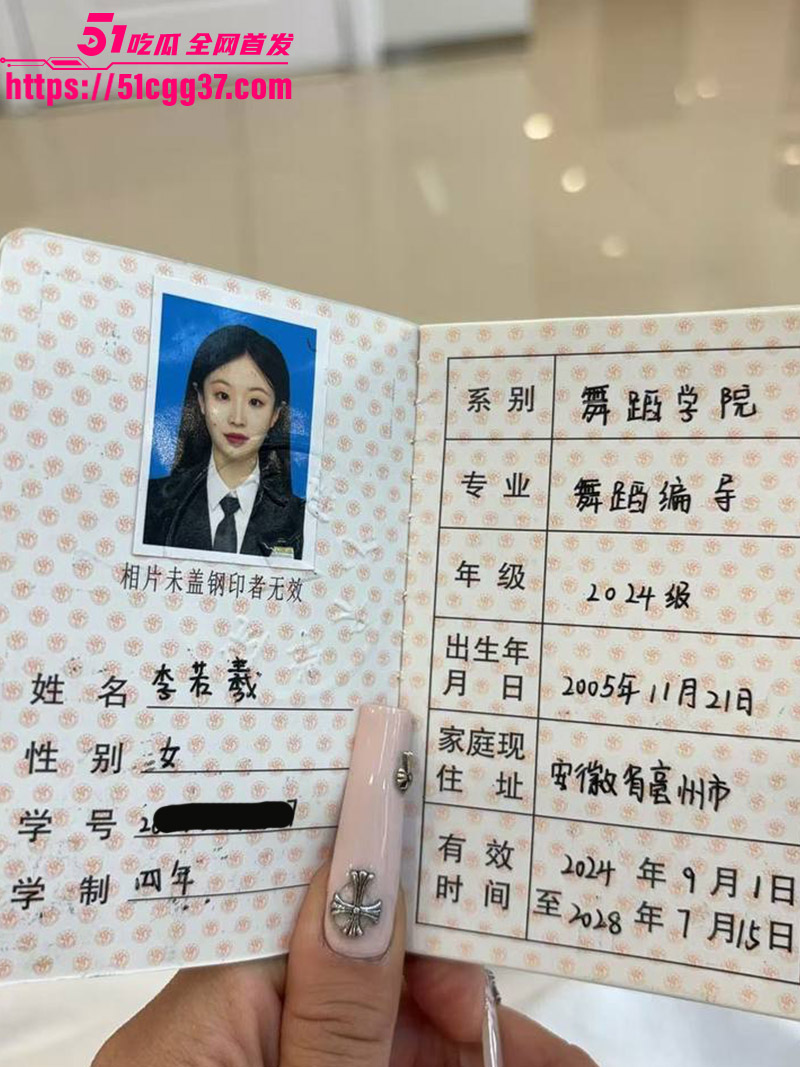 51吃瓜 全网首发
https://51cgg37.com
相片未盖钢印者无效
姓 名 李若羲
性 别 女
学 号 20
学 制 四年
系 别 舞蹈学院
专 业 舞蹈编导
年 级 2024级
出生年月 日 2005年11月21日
家庭现住 址 安徽省亳州市
有 效时 间 2024 年 9 月 1 日
至 2028 年 7 月 15 日